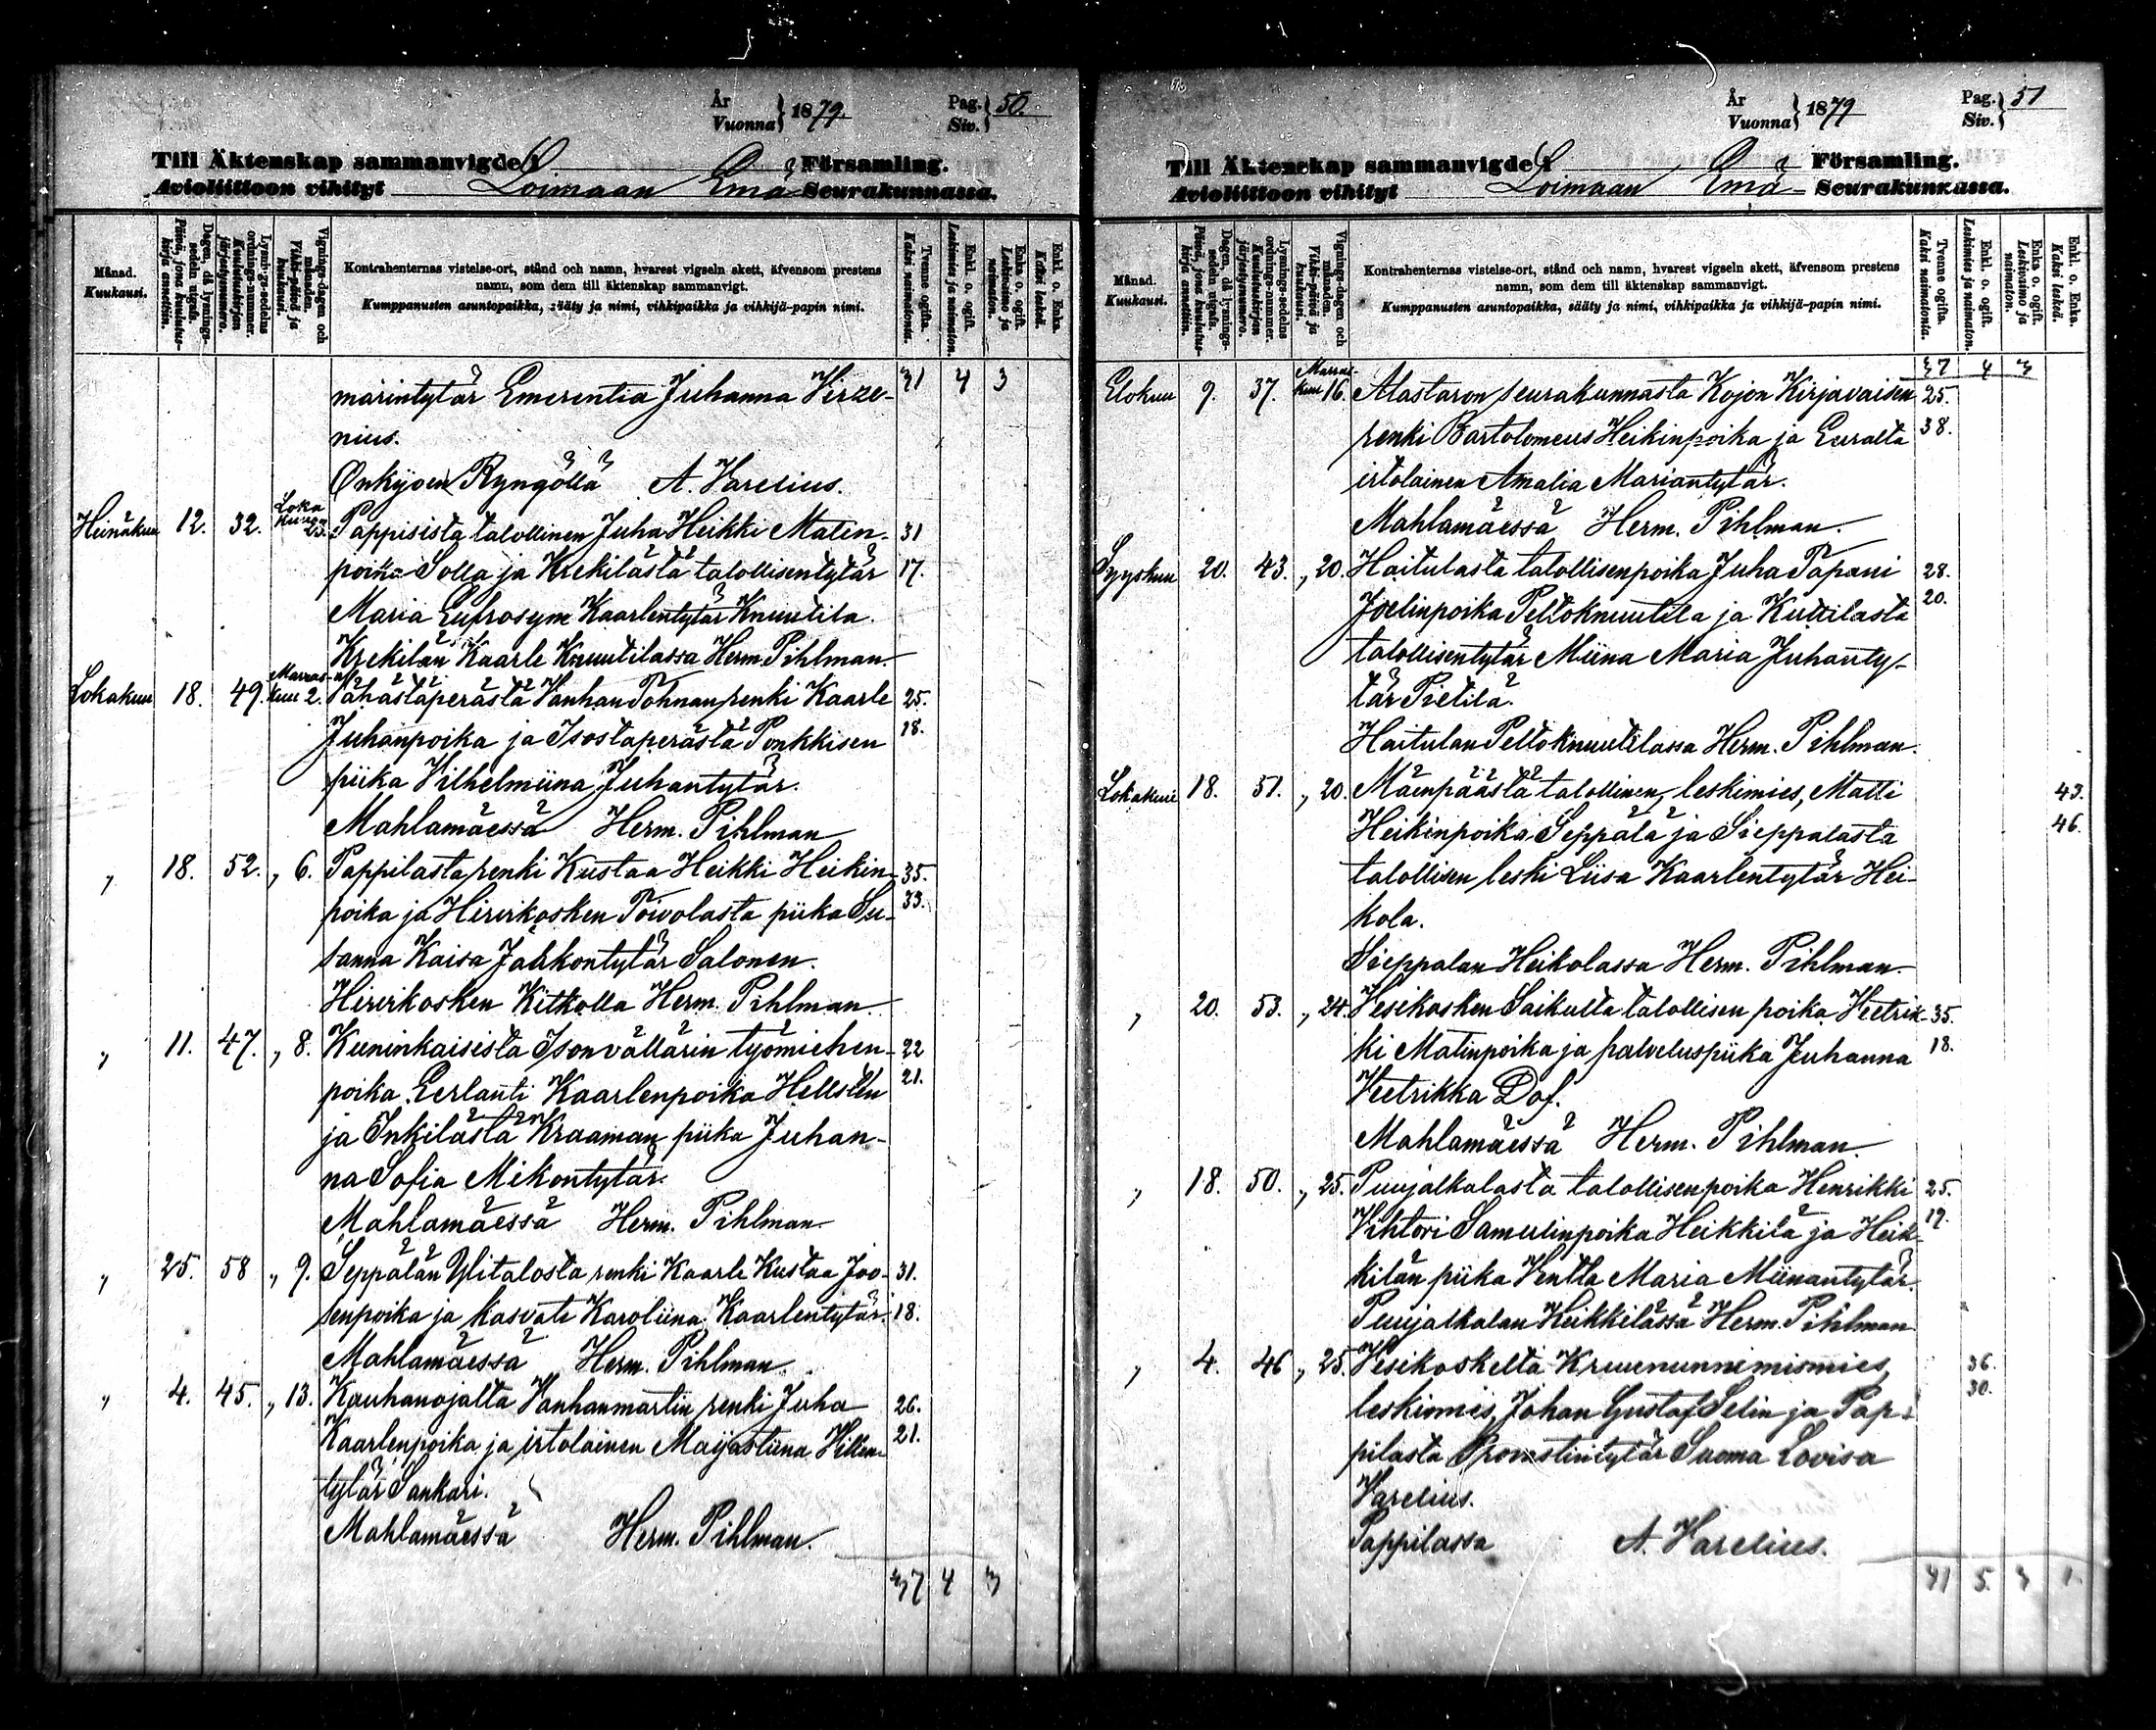 År
Vuonna } 1879. Pag. Siv. } 50.
Till Äktenskap sammanvigde i Församling.
Avioliittoon vihityt Loimaan Emä Seurakunnassa.
Månad. Kuukausi.
Dagen, då lysningssedeln utgafs. Päivä, jona kuulutuskirja annettiin.
Lysnings-sedelns ordnings-nummer. Kuulutuskirjan järjestysnumero.
Vignings-dagen och månaden. Vihki-päivä ja kuukausi.
Kontrahenternas vistelse-ort, stånd och namn, hvarest vigseln skett, äfvensom prestens namn, som dem till äktenskap sammanvigt.
Kumppanusten asuntopaikka, sääty ja nimi, vihkipaikka ja vihkijä-papin nimi.
Tvenne ogifta. Kaksi naimatonta.
Enkl. o. ogift. Leskimies ja naimaton.
Enka o. ogift. Leskivaimo ja naimaton.
Enkl. o. Enka. Kaksi leskeä.
märintytär Emerentia Juhanna Virze- 31 4 3
nius.
Onkijoen Ryngöllä A. Varelius.
Heinäkuu 12. 32. Lokakuu 23. Pappisista talollinen Juha Heikki Matin- 31
poika Solla ja Krekilästä talollisentytär 17.
Maria Eufrosyne Kaarlentytär Knuutila.
Krekilän Kaarle Knuutilassa Herm. Pihlman.
Lokakuu 18. 49. Marraskuu 2. Tähästäperästä Vanhan Tohnan renki Kaarle 25.
Juhanpoika ja Isostaperästä Ponkkisen 18.
piika Vilhelmiina Juhantytär.
Mahlamäessä Herm. Pihlman
" 18. 52. " 6. Pappilasta renki Kustaa Heikki Heikin- 35.
poika ja Hirvikosken Toivolasta piika Su- 33.
sanna Kaisa Jaakkontytär Salonen.
Hirvikosken Kitkolla Herm. Pihlman.
" 11. 47. " 8. Kuninkaisista Isonvällärin työmiehen- 22
poika Eerlanti Kaarlenpoika Hellstén 21.
ja Inkilästä Kraaman piika Juhan-
na Sofia Mikontytär.
Mahlamäessä Herm. Pihlman
" 25. 58 " 9. Seppälän Ylitalosta renki Kaarle Kustaa Joo- 31.
senpoika ja kasvati Karoliina Kaarlentytär. 18.
Mahlamäessä Herm. Pihlman.
" 4. 45. " 13. Kauhanojalta Vanhanmartin renki Juha 26.
Kaarlenpoika ja irtolainen Maijastiina Villen- 21.
tytär Sankari.
Mahlamäessä Herm. Pihlman.
37 4 3
År
Vuonna } 1879 Pag. Siv. } 51
Till Äktenskap sammanvigde i Församling.
Avioliittoon vihityt Loimaan Emä- Seurakunnassa.
Månad. Kuukausi.
Dagen, då lysningssedeln utgafs. Päivä, jona kuulutuskirja annettiin.
Lysnings-sedelns ordnings-nummer. Kuulutuskirjan järjestysnumero.
Vignings-dagen och månaden. Vihki-päivä ja kuukausi.
Kontrahenternas vistelse-ort, stånd och namn, hvarest vigseln skett, äfvensom prestens namn, som dem till äktenskap sammanvigt.
Kumppanusten asuntopaikka, sääty ja nimi, vihkipaikka ja vihkijä-papin nimi.
Tvenne ogifta. Kaksi naimatonta.
Enkl. o. ogift. Leskimies ja naimaton.
Enka o. ogift. Leskivaimo ja naimaton.
Enkl. o. Enka. Kaksi leskeä.
37 4 3
Elokuu 9. 37. Marraskuu 16. Alastaron seurakunnasta Kojon Kirjavaisen 25.
renki Bartolomeus Heikinpoika ja Euralta 38.
irtolainen Amalia Mariantytär.
Mahlamäessä Herm. Pihlman.
Syyskuu 20. 43. " 20. Haitulasta talollisenpoika Juha Tapani 28.
Joelinpoika Peltoknuutila ja Kuttilasta 20.
talollisentytär Miina Maria Juhanty-
tär Pietilä.
Haitulan Peltoknuutilassa Herm. Pihlman.
Lokakuu 18. 51. " 20. Mäenpäästä talollinen, leskimies, Matti 43.
Heikinpoika Seppälä ja Sieppalasta 46.
talollisen leski Liisa Kaarlentytär Hei-
kola.
Sieppalan Heikolassa Herm. Pihlman.
" 20. 53. " 24. Vesikosken Saikulta talollisen poika Veetrik- 35.
ki Matinpoika ja palveluspiika Juhanna 18.
Veetrikka Dof.
Mahlamäessä Herm. Pihlman.
" 18. 50. " 25. Puujalkalasta talollisenpoika Henrikki 25.
Vihtori Samuelinpoika Heikkilä ja Heik- 19.
kilän piika Ventla Maria Miinantytär.
Puujalkalan Heikkilässä Herm. Pihlman
" 4. 46 " 25. Vesikoskelta Kruununnimismies, 36.
leskimies, Johan Gustaf Selin ja Pap- 30.
pilasta Provastintytär Saema Lovisa
Varelius.
Pappilassa A. Varelius.
41 5. 3 1.